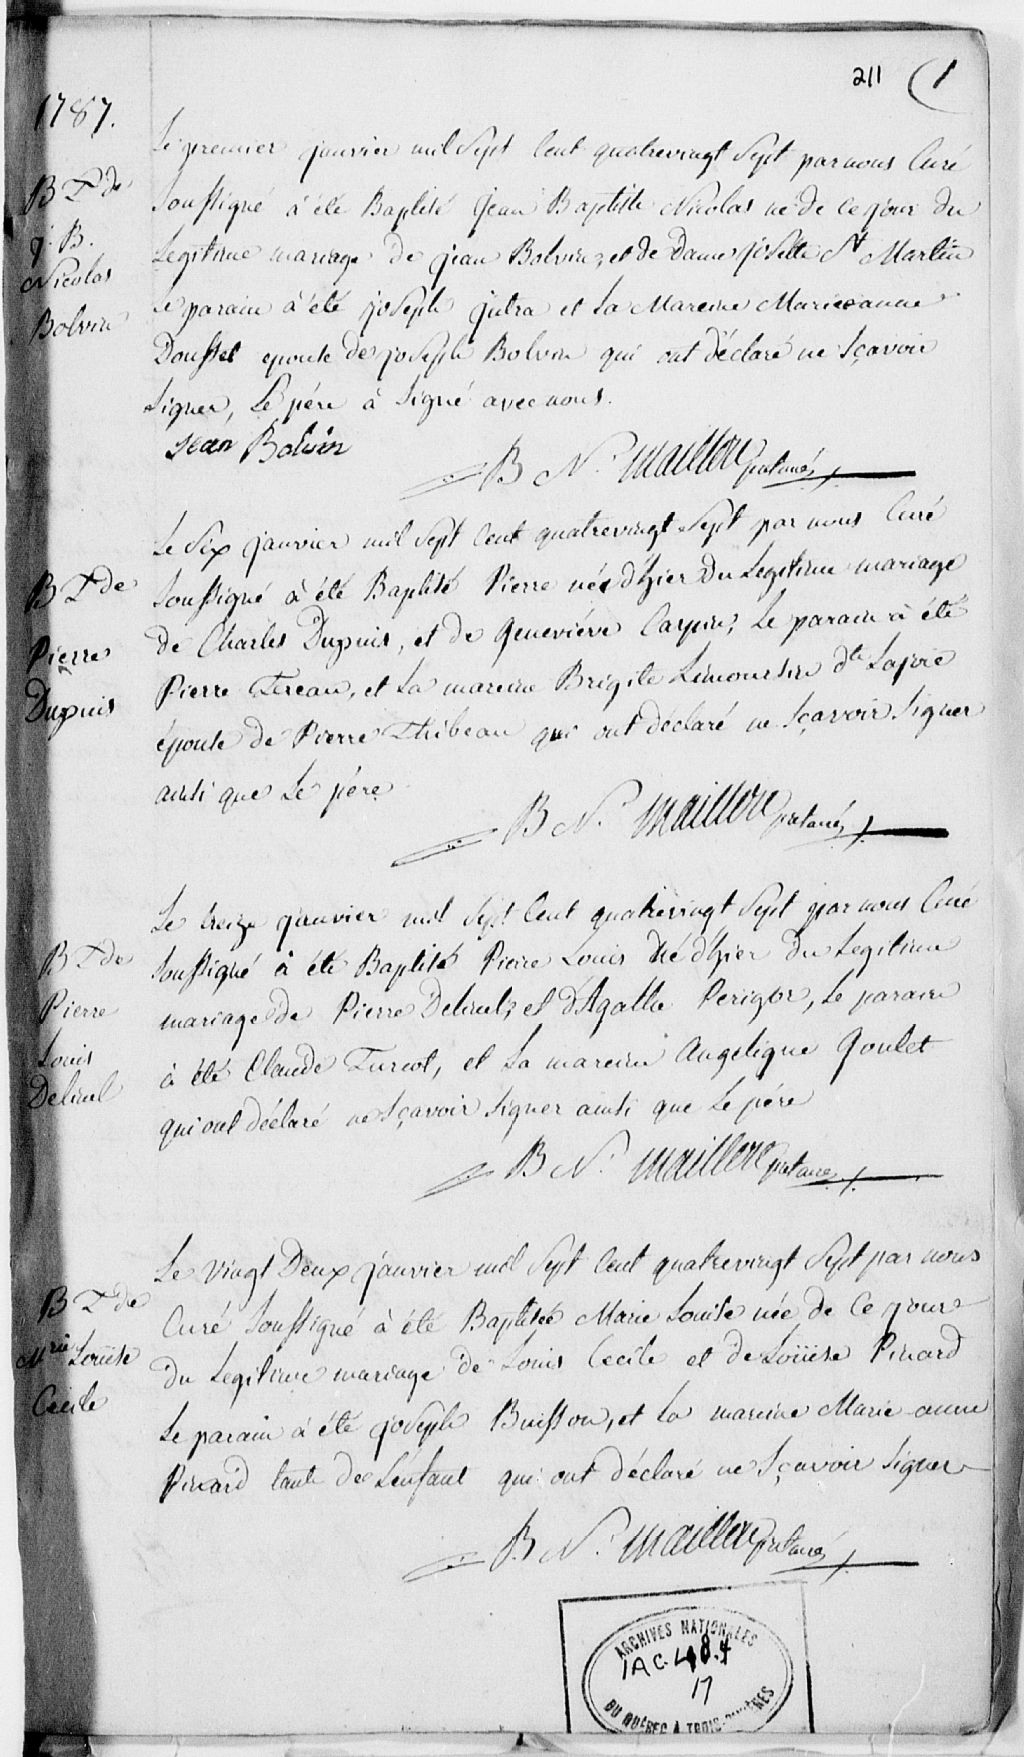 211 (1
1787.
Le premier janvier mil Sept Cent quatrevingt Sept par nous Curé
B T de
J. B.
Nicolas
Bolvin
Soussigné à été Baptisé Jean Baptiste Nicolas né de ce jour du
Legitime mariage de jean Bolvin, et de Dame josette St Martin
Le parain à été joseph jutra et La Mareine Marie anne
Doussel epouse de joseph Bolvin qui ont déclaré ne Sçavoir
Signer, Le pére à Signé avec nous.
Jean Bolvin
B N. Maillou
Le Six janvier mil Sept Cent quatrevingt Sept par nous Curé
B T de
Pierre
Dupuis
Soussigné à été Baptisé Pierre né d'hier Du Legitime mariage
de Charles Dupuis, et de Geneviéve Le parain à été
Pierre et La mareine Brigite dte Lajoie
épouse de Pierre Thibeau qui ont déclaré ne Sçavoir Signer
ainsi que Le pére
B N. Maillou
Le treize janvier mil Sept Cent quatrevingt Sept par nous Curé
B T de
Pierre
Louis
Soussigné à été Baptisé Pierre Louis né d'hier du Legitime
mariage de Pierre et d'Agathe Perigor, Le parain
à été Claude Turcot, et La mareine Angelique Goulet
qui ont déclaré ne Sçavoir Signer ainsi que Le pére
B N. Maillou
Le Vingt Deux janvier mil Sept Cent quatrevingt Sept par nous
B T de
Mrie Loüise
Cecile
Curé Soussigné à été Baptisée Marie Louise née de Ce jour
du Legitime mariage de Louis Cecile et de Loüise Pinard
Le parain à été joseph Buisson, et La mareine Marie anne
Pinard tante de L'enfant qui ont déclaré ne Sçavoir Signer
B N. Maillou
ARCHIVES NATIONALES
17
DU QUÉBEC À TROIS-RIVIÈRES